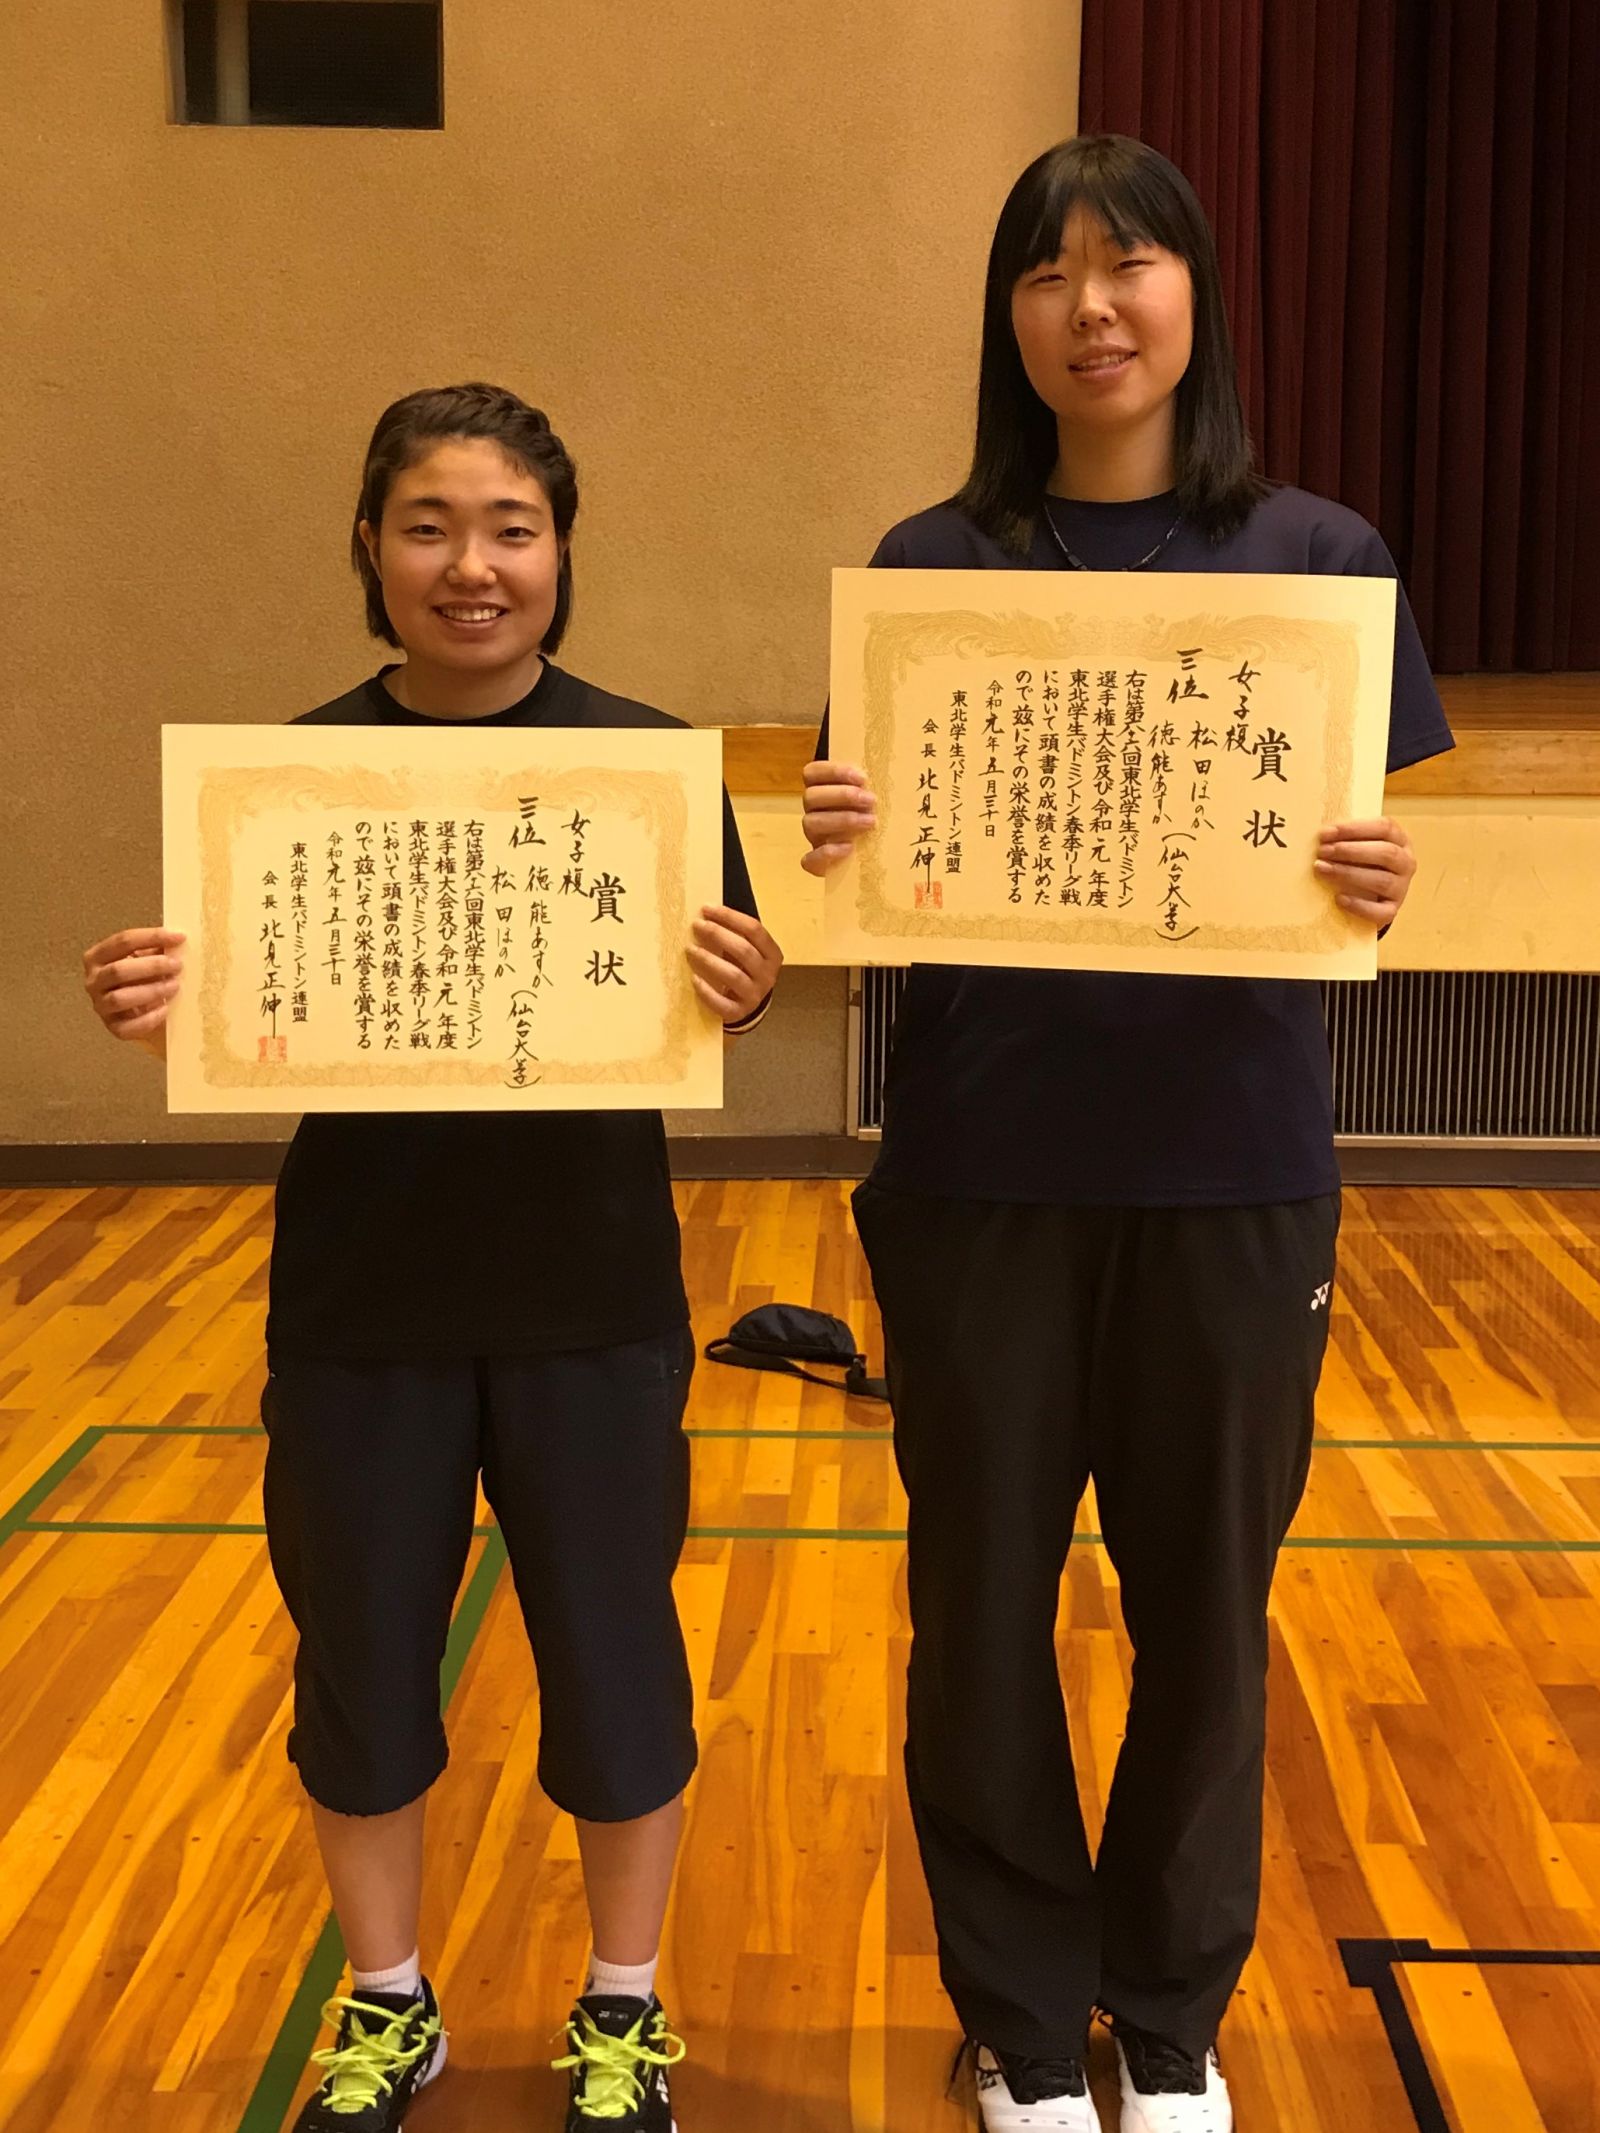 賞状
女子複
三位 徳能あすか(仙台大学)
松田ほのか
右は第六十六回東北学生バドミントン
選手権大会及び令和元年度
東北学生バドミントン春季リーグ戦
において頭書の成績を収めた
ので茲にその栄誉を賞する
令和元年五月三十日
東北学生バドミントン連盟
会長 北見正伸
賞状
女子複
三位 松田ほのか
徳能あすか(仙台大学)
右は第六十六回東北学生バドミントン
選手権大会及び令和元年度
東北学生バドミントン春季リーグ戦
において頭書の成績を収めた
ので茲にその栄誉を賞する
令和元年五月三十日
東北学生バドミントン連盟
会長 北見正伸